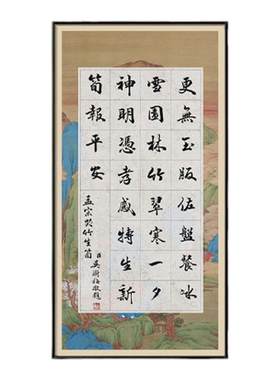 更無玉版佐盤餐冰
雪園林竹翠寒一夕
神明憑孝感特生新
筍報平安
孟宗哭竹生筍
吳 敬題